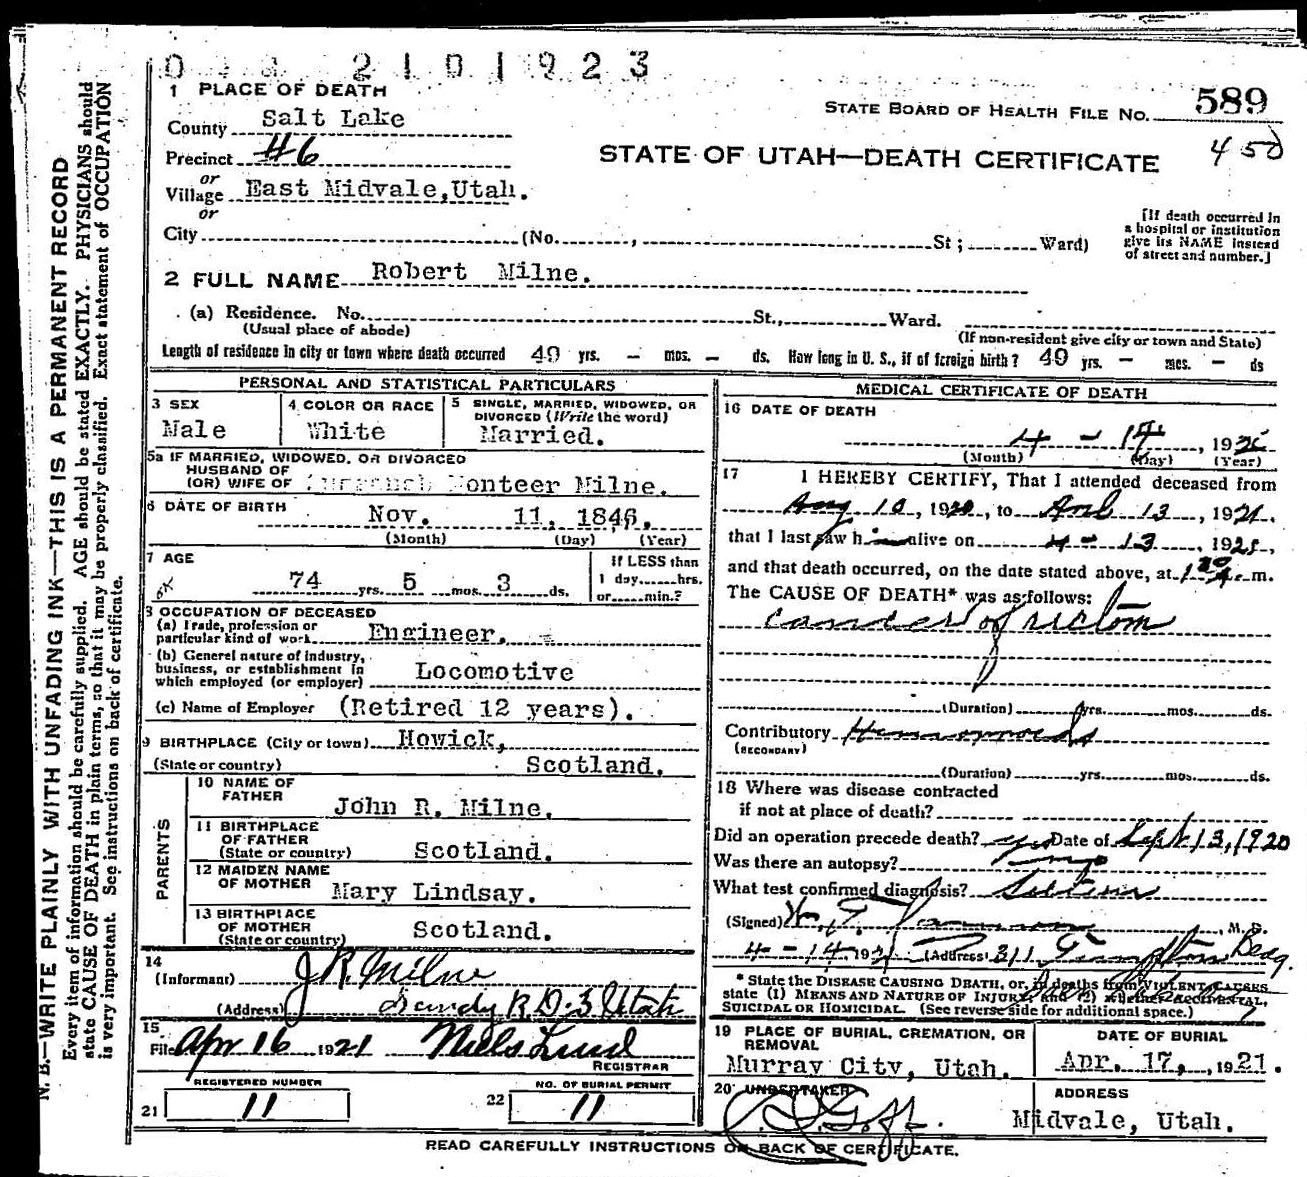 2101923
1 PLACE OF DEATH
STATE BOARD OF HEALTH FILE NO. 589
County Salt Lake
450
Precinct #6
STATE OF UTAH—DEATH CERTIFICATE
or
Village East Midvale, Utah.
or
City (No. , St; Ward)
[If death occurred in a hospital or institution give its NAME instead of street and number.]
2 FULL NAME Robert Milne.
(a) Residence. No. St., Ward.
(Usual place of abode) (If non-resident give city or town and State)
Length of residence in city or town where death occurred 49 yrs. - mos. - ds. How long in U. S., if of foreign birth? 49 yrs. - mos. - ds
PERSONAL AND STATISTICAL PARTICULARS
3 SEX
Male
4 COLOR OR RACE
White
5 SINGLE, MARRIED, WIDOWED, OR DIVORCED (Write the word)
Married.
5a IF MARRIED, WIDOWED, OR DIVORCED
HUSBAND OF
(OR) WIFE OF Monteer Milne.
6 DATE OF BIRTH
Nov. 11, 1846.
(Month) (Day) (Year)
7 AGE
74 yrs. 5 mos. 3 ds.
If LESS than
1 day......hrs.
or......min.?
8 OCCUPATION OF DECEASED
(a) Trade, profession or
particular kind of work Engineer.
(b) General nature of industry,
business, or establishment in
which employed (or employer) Locomotive
(c) Name of Employer (Retired 12 years).
9 BIRTHPLACE (City or town) Howick,
(State or country) Scotland.
PARENTS
10 NAME OF
FATHER
John R. Milne.
11 BIRTHPLACE
OF FATHER
(State or country) Scotland.
12 MAIDEN NAME
OF MOTHER Mary Lindsay.
13 BIRTHPLACE
OF MOTHER
(State or country) Scotland.
14
(Informant) J R Milne
(Address) Sandy R.D-3 Utah
15
Filed Apr 16 1921 Niels Lind
REGISTRAR
REGISTERED NUMBER
21 11
NO. OF BURIAL PERMIT
22 11
MEDICAL CERTIFICATE OF DEATH
16 DATE OF DEATH
4 - 14, 192
(Month) (Day) (Year)
17 I HEREBY CERTIFY, That I attended deceased from
Aug 10, 1920, to April 13, 1921.
that I last saw him alive on 4-13, 1921,
and that death occurred, on the date stated above, at m.
The CAUSE OF DEATH* was as follows:
Cancer of rectum
(Duration) yrs. mos. ds.
Contributory Hemorrhoids
(SECONDARY)
(Duration) yrs. mos. ds.
18 Where was disease contracted
if not at place of death?
Did an operation precede death? yes Date of Sept 13, 1920
Was there an autopsy? no
What test confirmed diagnosis?
(Signed) , M. D.
4-14, 1921 (Address) 311 Bldg.
* State the DISEASE CAUSING DEATH, or, in deaths from VIOLENT CAUSES
state (1) MEANS AND NATURE OF INJURY; and (2) whether ACCIDENTAL,
SUICIDAL OR HOMICIDAL. (See reverse side for additional space.)
19 PLACE OF BURIAL, CREMATION, OR
REMOVAL
Murray City, Utah.
DATE OF BURIAL
Apr. 17, 1921.
20 UNDERTAKER
Goff.
ADDRESS
Midvale, Utah.
READ CAREFULLY INSTRUCTIONS ON BACK OF CERTIFICATE.
N. B.—WRITE PLAINLY WITH UNFADING INK—THIS IS A PERMANENT RECORD
Every item of information should be carefully supplied. AGE should be stated EXACTLY. PHYSICIANS should
state CAUSE OF DEATH in plain terms, so that it may be properly classified. Exact statement of OCCUPATION
is very important. See instructions on back of certificate.